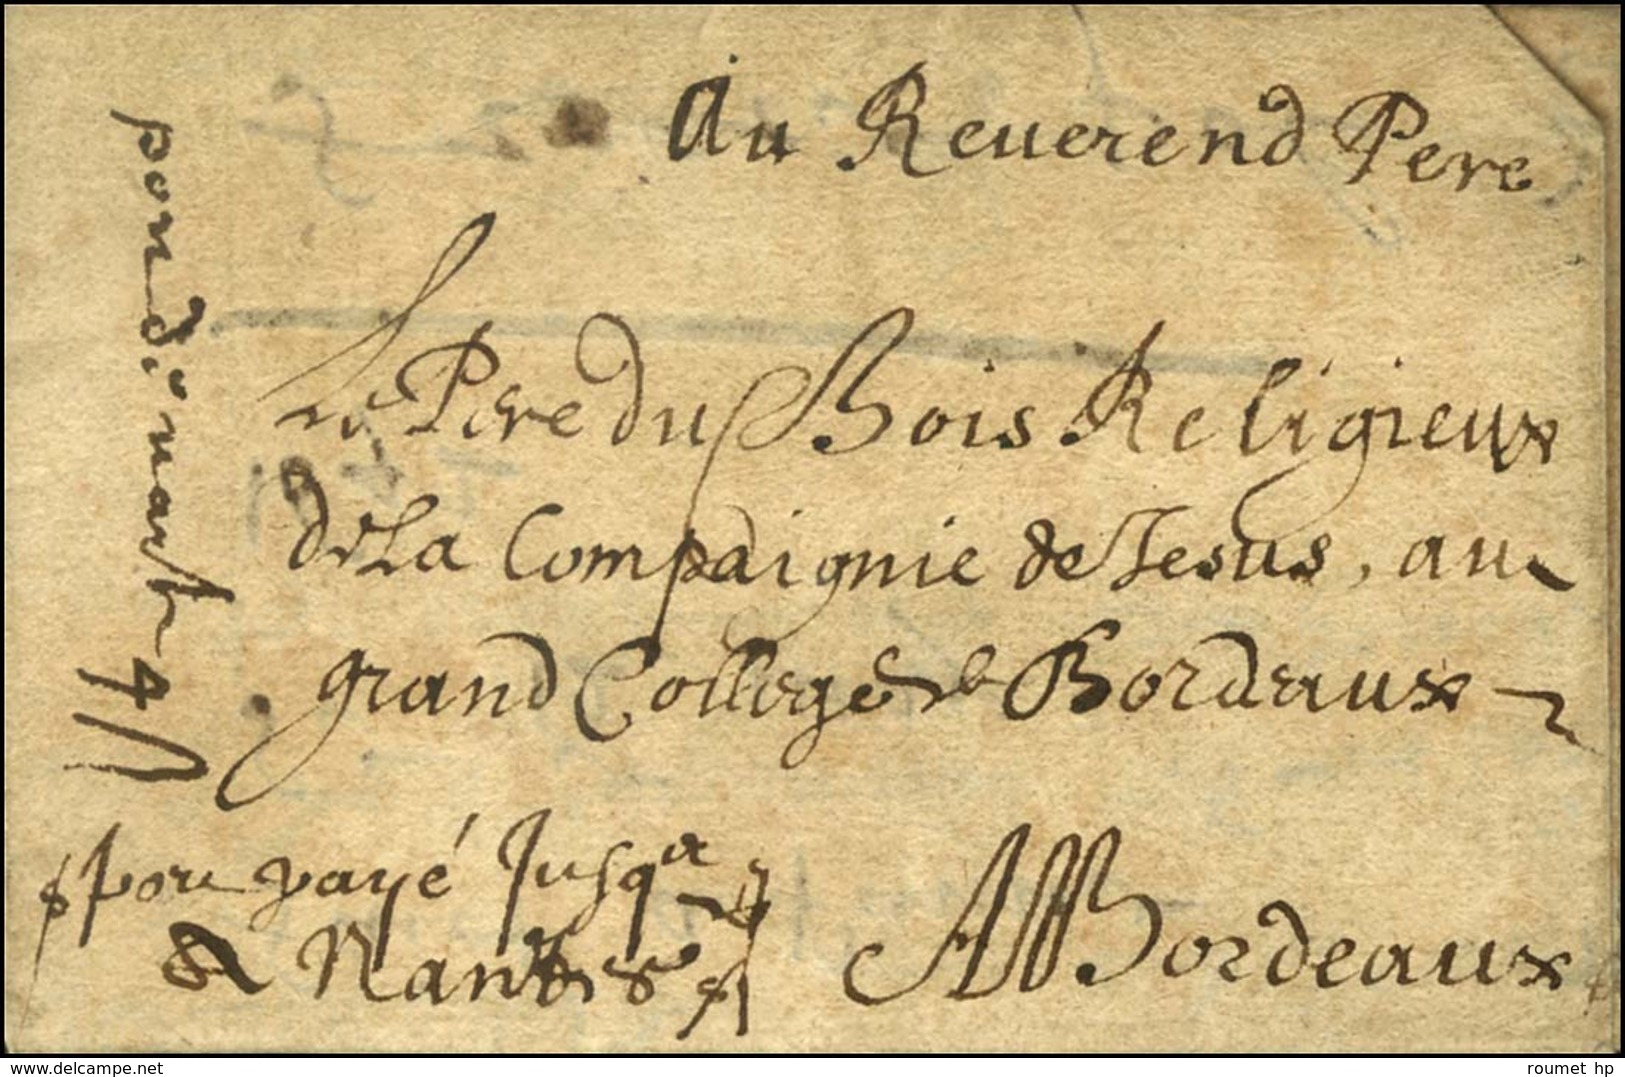 Au Reuerend Pere
Le Pere du Bois Religieux
de La Compaignie de Jesus, au
grand College de Bordeaux
A Bordeaux
port payé Jusq'a
Nantes
port de nantes 4 s
www.delcampe.net
roumet hp